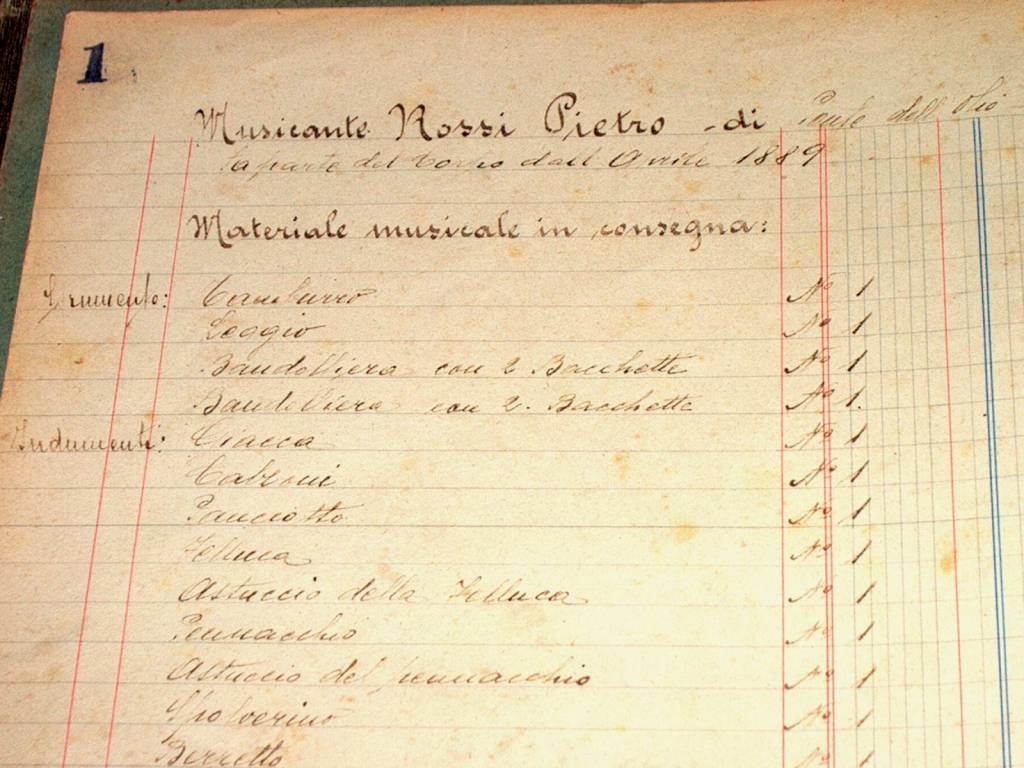 1
Musicante Rossi Pietro - di Ponte dell' Olio
fa parte del Corpo dall' Aprile 1889
Materiale musicale in consegna:
Strumento: Tamburro Nº 1
Leggio Nº 1
Bandoliera con 2 Bacchette Nº 1
Bandoliera con 2. Bacchette Nº 1.
Indumenti: Giacca Nº 1
Calzoni Nº 1
Panciotto Nº 1
Felluca Nº 1
Astuccio della Felluca Nº 1
Pennacchio Nº 1
Astuccio del pennacchio Nº 1
Spolverino Nº 1
Berretto Nº 1